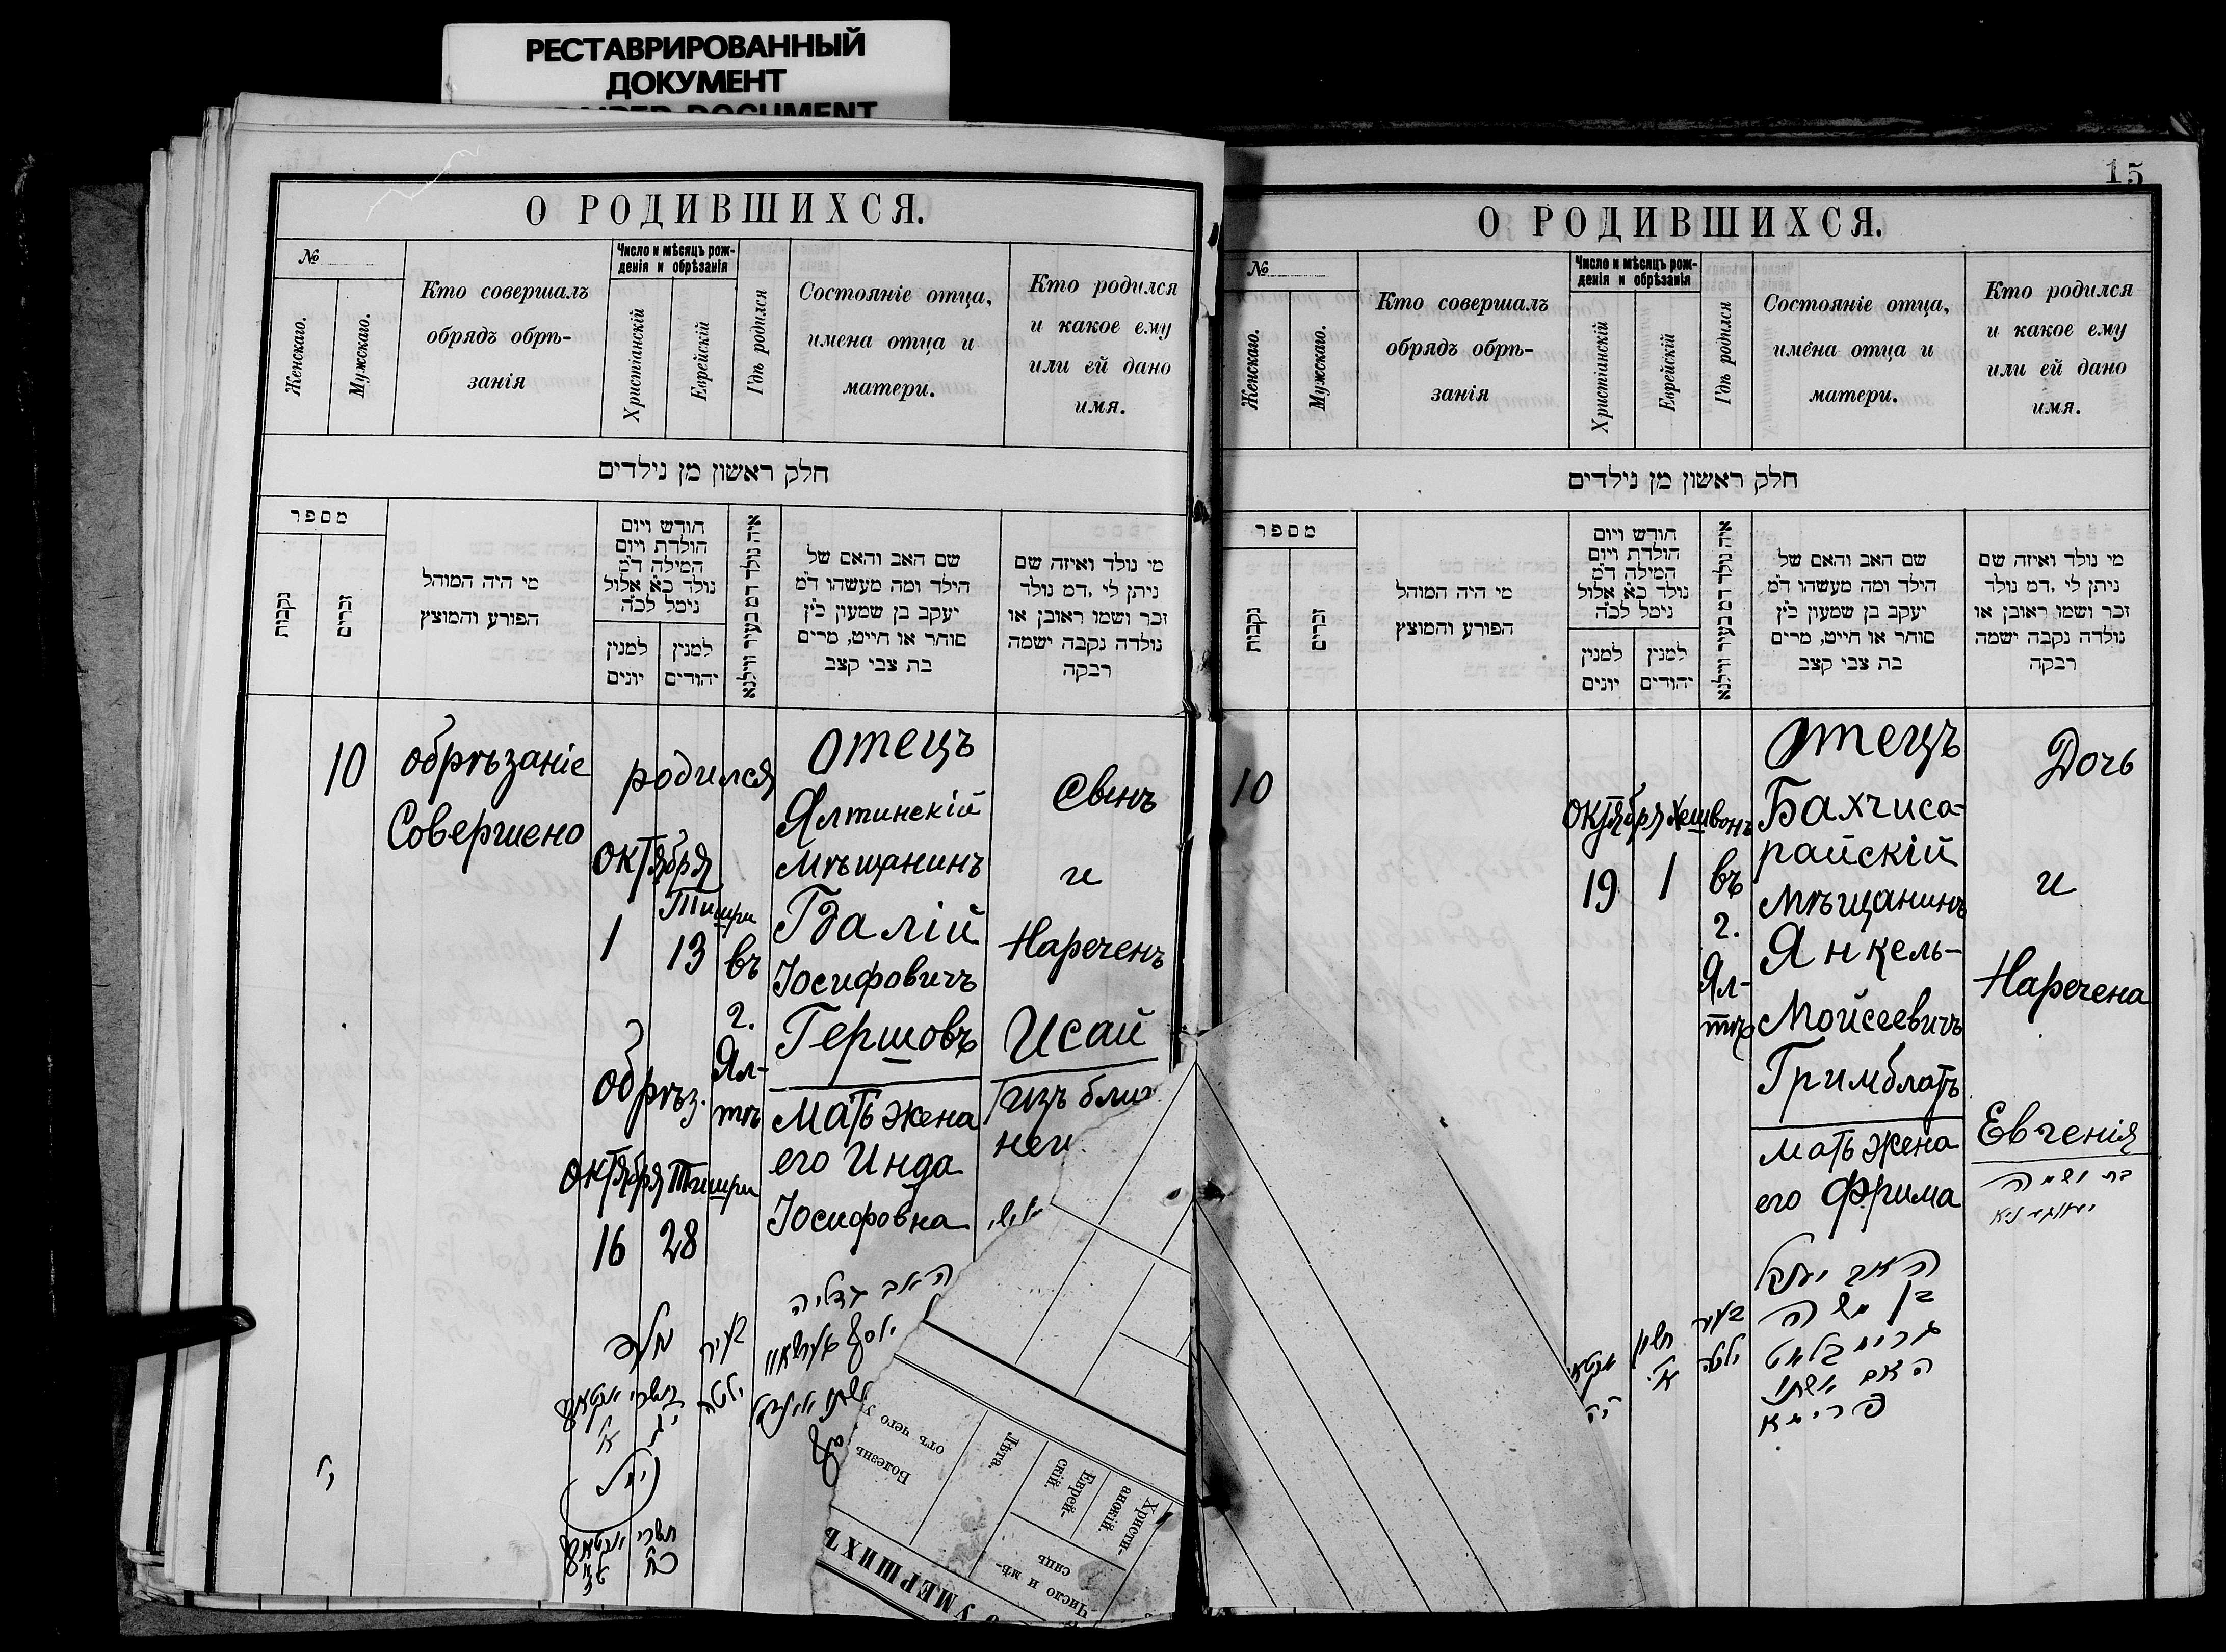 РЕСТАВРИРОВАННЫЙ
ДОКУМЕНТ
DOCUMENT
О РОДИВШИХСЯ.
№
Женскаго.
Мужскаго.
Кто совершалъ
обрядъ обрѣ-
занія
Число и мѣсяцъ рож-
денія и обрѣзанія
Христіанскій
Еврейскій
Гдѣ родился
Состояніе отца,
имена отца и
матери.
Кто родился
и какое ему
или ей дано
имя.
חלק ראשון מן נילדים
מספר
נקבות
זכרים
מי היה המוהל
הפורע והמוצץ
חודש ויום
הולדת ויום
המילה ד״מ
נולד כ״א אלול
נימל לכ״ה
למנין
יונים
למנין
יהודים
איה נולד דמ בעיר ווילנא
שם האב והאם של
הילד ומה מעשהו ד״מ
יעקב בן שמעון כ״ץ
סוחר או חייט, מרים
בת צבי קצב
מי נולד ואיזה שם
ניתן לי ,דמ נולד
זכר ושמו ראובן או
נולדה נקבה ישמה
רבקה
10
обрѣзаніе
Совершено
родился
октября
Тишри
1
13
обрѣз.
октября Тишри
16
28
въ
г.
Ял-
тѣ
отецъ
Ялтинскій
Мѣщанинъ
Гдалій
Іосифовичъ
Гершовъ
Мать жена
его Инда
Іосифовна
Свинъ
и
Нареченъ
Исай
изъ близ
נולד
בעיר
ילטה
האב גדליה
תשרי
Болезнь
отъ чего у
Лѣта.
Еврей-
скій.
Христи-
анскій.
Число и мѣ-
сяцъ
УМЕРШИХЪ
15
О РОДИВШИХСЯ.
№
Женскаго.
Мужскаго.
Кто совершалъ
обрядъ обрѣ-
занія
Число и мѣсяцъ рож-
денія и обрѣзанія
Христіанскій
Еврейскій
Гдѣ родился
Состояніе отца,
имена отца и
матери.
Кто родился
и какое ему
или ей дано
имя.
חלק ראשון מן נילדים
מספר
נקבות
זכרים
מי היה המוהל
הפורע והמוצץ
חודש ויום
הולדת ויום
המילה ד״מ
נולד כ״א אלול
נימל לכ״ה
למנין
יונים
למנין
יהודים
איה נולד דמ בעיר ווילנא
שם האב והאם של
הילד ומה מעשהו ד״מ
יעקב בן שמעון כ״ץ
סוחר או חייט, מרים
בת צבי קצב
מי נולד ואיזה שם
ניתן לי ,דמ נולד
זכר ושמו ראובן או
נולדה נקבה ישמה
רבקה
10
октября Хешвонъ
19
1
въ
г.
Ял-
тѣ
отецъ
Бахчиса-
райскій
Мѣщанинъ
Янкель-
Мойсеевичъ
Гримблатъ
мать жена
его Фрима
Дочь
и
Наречена
Евгенія
בת ושמה
האב יענקל
בן משה
גרימבלאט
האם אשתו
פרימא
בעיר
ילטה
חשון
א׳